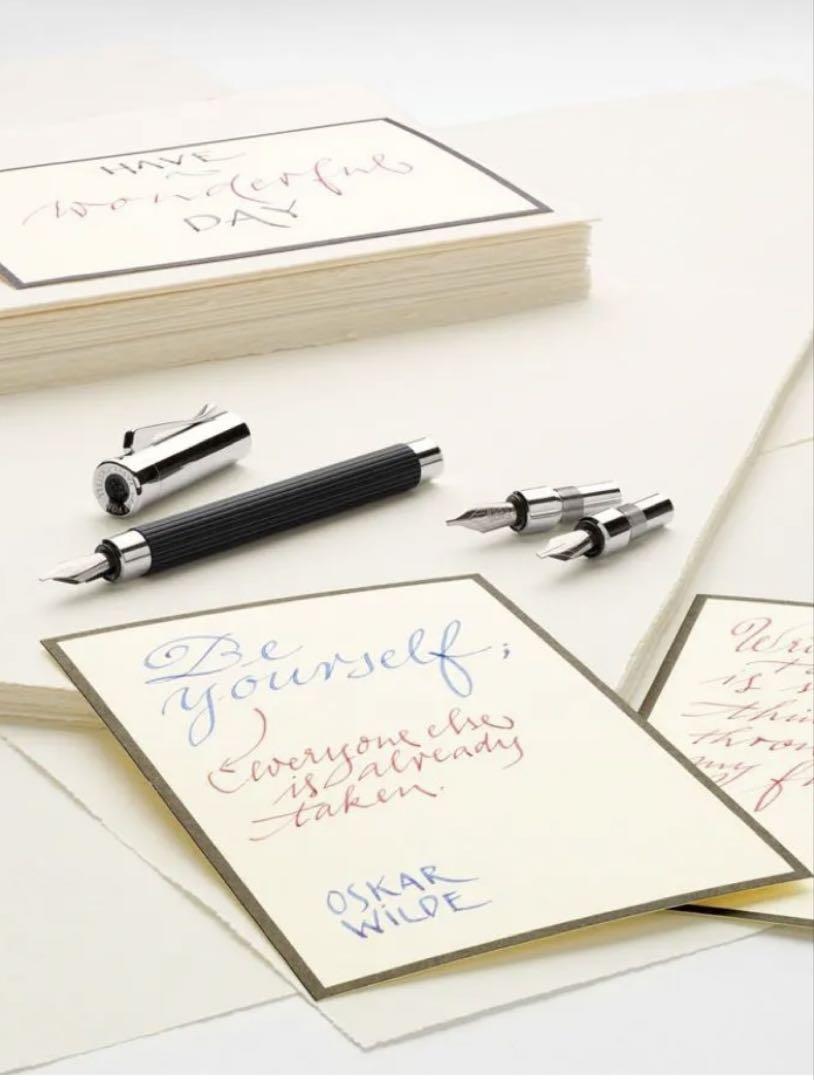 HAVE
a
wonderful
DAY
Be
yourself;
everyone else
is already
taken.
OSKAR
WILDE
is s
my f